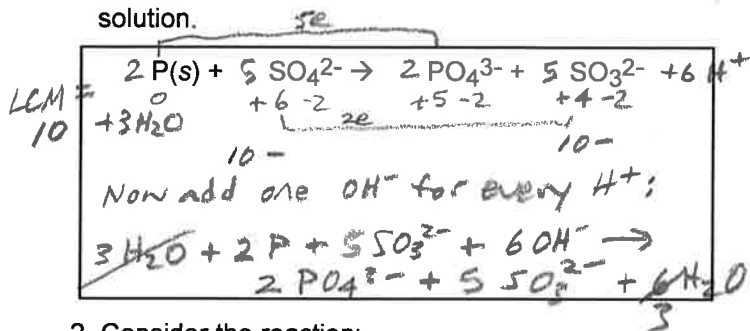 solution.
5e
2 P(s) + 5 SO₄²⁻ → 2 PO₄³⁻ + 5 SO₃²⁻ + 6 H⁺
LCM = 10
0 +6 -2 +5 -2 +4 -2
+3H₂O
2e
10 - 10 -
Now add one OH⁻ for every H⁺:
3 H₂O + 2 P + 5 SO₃²⁻ + 6 OH⁻ →
2 PO₄³⁻ + 5 SO₃²⁻ + 6 H₂O
3
2. Consider the reaction: